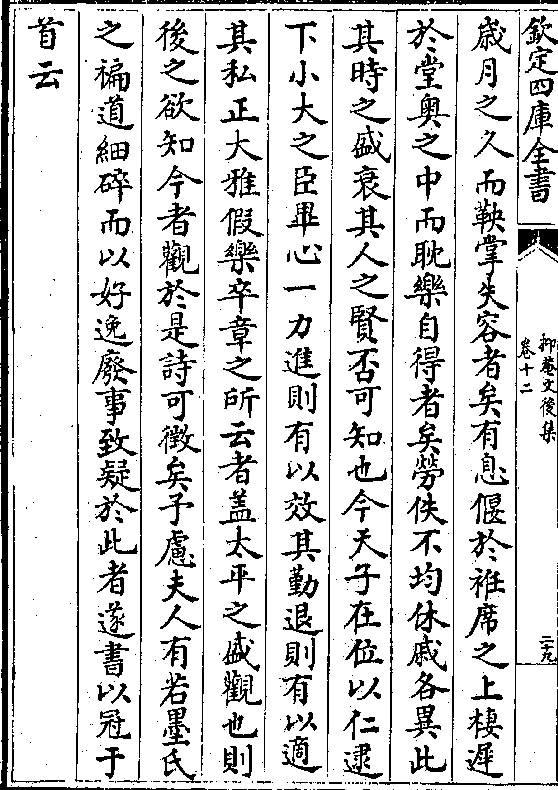 欽定四庫全書
抑菴文後集
卷十二
二十九
歲月之久而鞅掌失容者矣有息偃於袵席之上棲遲
於堂奥之中而耽樂自得者矣勞佚不均休戚各異此
其時之盛衰其人之賢否可知也今天子在位以仁逮
下小大之臣畢心一力進則有以效其勤退則有以適
其私正大雅假樂卒章之所云者盖太平之盛觀也則
後之欲知今者觀於是詩可徵矣予慮夫人有若墨氏
之褊道細碎而以好逸廢事致疑於此者遂書以冠于
首云